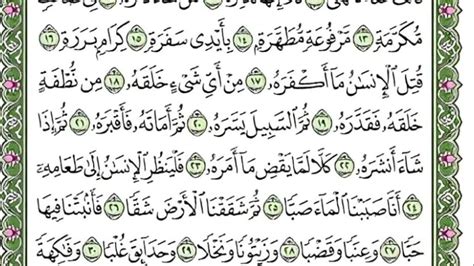 مُّكَرَّمَةٍ ١٣ مَّرْفُوعَةٍ مُّطَهَّرَةٍ ١٤ بِأَيْدِي سَفَرَةٍ ١٥ كِرَامٍ بَرَرَةٍ ١٦
قُتِلَ الْإِنسَانُ مَا أَكْفَرَهُ ١٧ مِنْ أَيِّ شَيْءٍ خَلَقَهُ ١٨ مِن نُّطْفَةٍ
خَلَقَهُ فَقَدَّرَهُ ١٩ ثُمَّ السَّبِيلَ يَسَّرَهُ ٢٠ ثُمَّ أَمَاتَهُ فَأَقْبَرَهُ ٢١ ثُمَّ إِذَا
شَاءَ أَنشَرَهُ ٢٢ كَلَّا لَمَّا يَقْضِ مَا أَمَرَهُ ٢٣ فَلْيَنظُرِ الْإِنسَانُ إِلَىٰ طَعَامِهِ
٢٤ أَنَّا صَبَبْنَا الْمَاءَ صَبًّا ٢٥ ثُمَّ شَقَقْنَا الْأَرْضَ شَقًّا ٢٦ فَأَنبَتْنَا فِيهَا
حَبًّا ٢٧ وَعِنَبًا وَقَضْبًا ٢٨ وَزَيْتُونًا وَنَخْلًا ٢٩ وَحَدَائِقَ غُلْبًا ٣٠ وَفَاكِهَةً